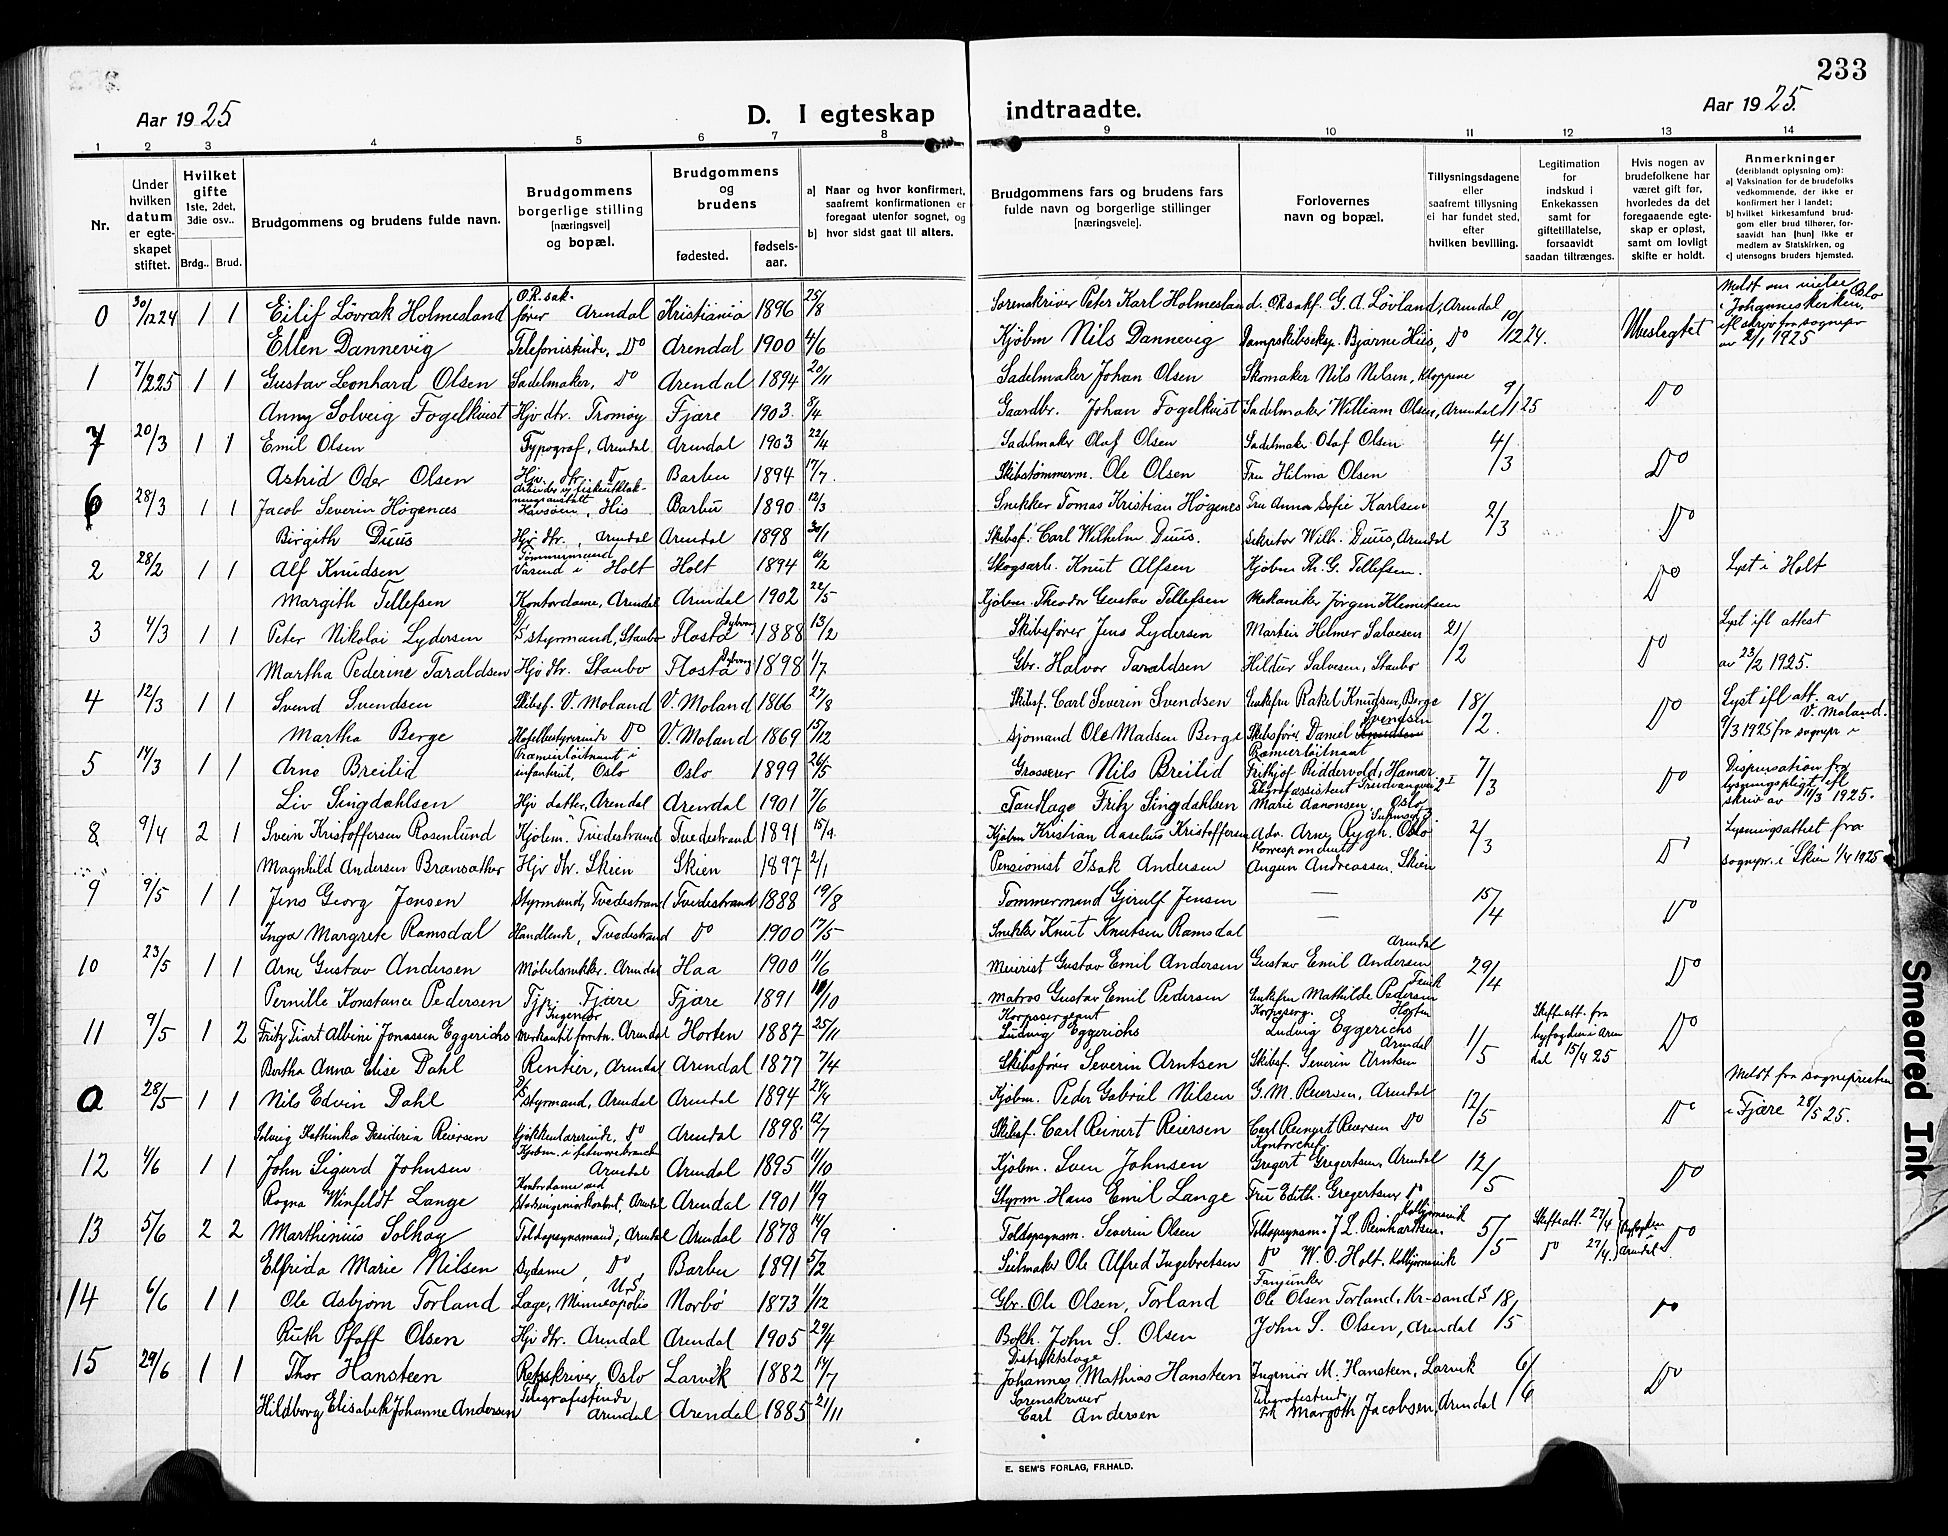 233
Aar 1925
D. I egteskap
indtraadte.
Aar 1925.
1 2 3 4 5 6 7 8 9 10 11 12 13 14
Nr.
Under hvilken datum er egteskapet stiftet.
Hvilket gifte 1ste, 2det, 3die osv..
Brdg.. Brud.
Brudgommens og brudens fulde navn.
Brudgommens borgerlige stilling [næringsvei] og bopæl.
Brudgommens og brudens
fødested. fødselsaar.
a) Naar og hvor konfirmert, saafremt konfirmationen er foregaat utenfor sognet, og
b) hvor sidst gaat til alters.
Brudgommens fars og brudens fars fulde navn og borgerlige stillinger [næringsveie].
Forlovernes navn og bopæl.
Tillysningsdagene eller saafremt tillysning ei har fundet sted, efter hvilken bevilling.
Legitimation for indskud i Enkekassen samt for giftetillatelse, forsaavidt saadan tiltrænges.
Hvis nogen av brudefolkene har været gift før, hvorledes da det foregaaende egteskap er opløst, samt om lovligt skifte er holdt.
Anmerkninger (deriblandt oplysning om):
a) Vaksination for de brudefolks vedkommende, der ikke er konfirmert her i landet;
b) hvilket kirkesamfund brudgom eller brud tilhører, forsaavidt han [hun] ikke er medlem av Statskirken, og
c) utensogns bruders hjemsted.
0 30/12 24 1 1 Eilif Lövrak Holmesland O.R. sakfører Arendal Kristiania 1896 25/8 Sorenskriver Peter Karl Holmesland. OR sakf. G. A. Lövland, Arendal Ubeslegtet Meldt om vielse i Johanneskirken, Oslo
Ellen Dannevig Telefonistinde, Do Arendal 1900 4/6 Kjöbm Nils Dannevig Dampskibseksp. Bjarne Hiis, Do 10/12 24. ifl skriv fra sognepr av 2/1 1925
1 7/2 25 1 1 Gustav Leonhard Olsen Sadelmaker, Do Arendal 1894 20/11 Sadelmaker Johan Olsen Skomaker Nils Nilsen, Kloppene 9/1 25 Do
Anny Solveig Fogelkvist Hjv dtr. Tromöy Fjære 1903. 8/4 Gaardbr. Johan Fogelkvist Sadelmaker William Olsen, Arendal
7 20/3 1 1 Emil Olsen Typograf, Arendal Arendal 1903 22/4 Sadelmaker Olaf Olsen Sadelmaker Olaf Olsen 4/3 Do
Astrid Oder Olsen Hjv. dtr. Do Barbu 1894 17/7. Skibstømmerm. Ole Olsen Fru Hilma Olsen
6 28/3 1 1 Jacob Severin Högenæs Arbeider v/ fiskeutklækningsanstalt Havsöen, His Barbu 1890 12/3 Snekker Tomas Kristian Högenes Fru Anna Sofie Karlsen 2/3 Do
Birgith Duus Hjv dtr., Arendal Arendal 1898 30/1 Skibsf. Carl Wilhelm Duus. Sekretær Wilh. Duus, Arendal
2 28/2 1 1 Alf Knudsen Tömmermand Varund i Holt Holt 1894 10/2 Skogsarb. Knut Alfsen Kjöbm Th. G. Tellefsen. Do Lyst i Holt
Margith Tellefsen Kontordame, Arendal Arendal 1902 22/5 Kjöbm. Theodor Gustav Tellefsen Mekaniker Jörgen Klemetsen
3 4/3 1 1 Peter Nikolai Lydersen styrmand, Staubo Flosta Dybvaag 1888 13/2 Skibsfører Jens Lydersen Martin Helmer Salvesen 21/2 Do Lyst ifl attest
Martha Pederine Taraldsen Hjv dtr. Staubo Flosta Dybvaag 1898 1/7 Gbr. Halvor Taraldsen Hildur Salvesen, Staubo av 23/2 1925.
4 12/3 1 1 Svend Svendsen Skibsf. V. Moland V. Moland 1866 27/8 Skibsf. Carl Severin Svendsen Enkefru Rakel Knudsen, Berge 18/2. Do Lyst ifl att. av V. Moland.
Martha Berge Hotelbestyrerinde Do V. Moland 1869 15/12 Sjømand Ole Madsen Berge Skibsförer Daniel Svendsen 9/3 1925 fra sognepr i
5 14/3 1 1 Arne Breilid Præmierløitnant i infanteriet, Oslo Oslo 1899 26/5 Grosserer Nils Breilid Præmierløitnant Frithjof Riddervold, Hamar 7/3 Do Dispensation fra lysningspligt ifl
Liv Singdahlsen Hjv datter, Arendal Arendal 1901 7/6 Tandlæge Fritz Singdahlsen Telegrafassistent Marie Aanonsen, Oslo skriv av 11/3 1925.
8 9/4 2 1 Svein Kristoffersen Rosenlund Kjöbm. Tvedestrand Tvedestrand 1891 15/9. Kjöbm. Kristian Aaselius Kristoffersen Adv. Arne Rygh. Oslo 2/3 Do Lysningsattest fra
Magnhild Andersen Brænsæther Hjv dtr. Skien Skien 1897 2/1 Pensionist Isak Andersen Korrespondent Aagun Andreassen. Skien sognepr. i Skien 1/4 1925
9 9/5 1 1 Jens Georg Jensen Styrmand, Tvedestrand Tvedestrand 1888 19/8 Tømmermand Gjerulf Jensen — 15/4 Do
Inga Margrete Ramsdal Handlende, Tvedestrand Do 1900 17/5 Snekker Knut Knutsen Ramsdal —
10 23/5 1 1 Arne Gustav Andersen Møbelsnekker. Arendal Haa 1900 11/6 Meierist Gustav Emil Andersen Gustav Emil Andersen Arendal 29/4 Do
Pernille Konstance Pedersen Tjp. Fjære Fjære 1891 10/10 Matros Gustav Emil Pedersen Enkefru Mathilde Pedersen
11 9/5 1 2 Fritz Tiart Albini Jonassen Eggerichs Ingeniør merkantil forretn. Arendal Horten 1887 25/11 Korpssergeant Ludvig Eggerichs Korpsserg. Ludvig Eggerichs Horten 1/5 Skifteatt. fra byfogden i Arendal 15/4 25 Do
Bertha Anna Elise Dahl Rentier, Arendal Arendal 1877 7/4 Skibsfører Severin Arntsen Skibsf. Severin Arntsen Arendal
0 28/5 1 1 Nils Edvin Dahl styrmand, Arendal Arendal 1894 24/4 Kjöbm. Peder Gabriel Nilsen G. M. Reiersen, Arendal 12/5 Do Meldt fra sognepresten
Solvig Kathinka Desideria Reiersen Kjøkkenlærerinde, Do Arendal 1898. 12/7 Skibsf. Carl Reinert Reiersen Carl Reinert Reiersen Do i Fjære 28/5 25.
12 4/6 1 1 John Sigurd Johnsen Kjöbm. i Arendal Arendal 1895 11/10 Kjöbm. Sven Johnsen Kontorchef Gregert Gregertsen, Arendal 12/5 Do
Ragna Winfeldt Lange Kontordame ved Stadsingeniørkontoret, Arendal Arendal 1901 11/9 Styrm. Hans Emil Lange Fru Edith. Gregertsen Do
13 5/6 2 2 Marthinius Solhaug Toldopsynsmand, Arendal Arendal 1878 14/9 Toldopsynsm. Severin Olsen Toldopsynsm. J L. Reinhartsen. Kolbjørnsvik 5/5 Skifteatt. 27/4 Byfogden Arendal Do
Elfrida Marie Nilsen Sydame, Do Barbu 1891 5/2 Seilmaker Ole Alfred Ingebretsen Do W. O. Holt. Kolbjørnsvik Do 27/4.
14 6/6 1 1 Ole Asbjørn Torland Læge, Minneapolis U.S. Nærbö 1873 1/12 Gbr. Ole Olsen, Torland Fanjunker Ole Olsen Torland, Kr-sand S 18/5 Do
Ruth Pfaff Olsen Hjv dtr. Arendal Arendal 1905 29/4 Bokh. John S. Olsen John S. Olsen, Arendal
15 29/6 1 1 Thor Hansteen Retsskriver, Oslo Larvik 1882 14/7 Distriktslæge Johannes Mathias Hansteen Ingeniør M. Hansteen, Larvik 6/6 Do
Hildborg Elisabeth Johanne Andersen Telegrafistinde Arendal Arendal 1885 21/11 Sorenskriver Carl Andersen Telegrafistinde Frk Margoth Jacobsen, Arendal
E. SEM'S FORLAG, FR.HALD.
Smeared Ink